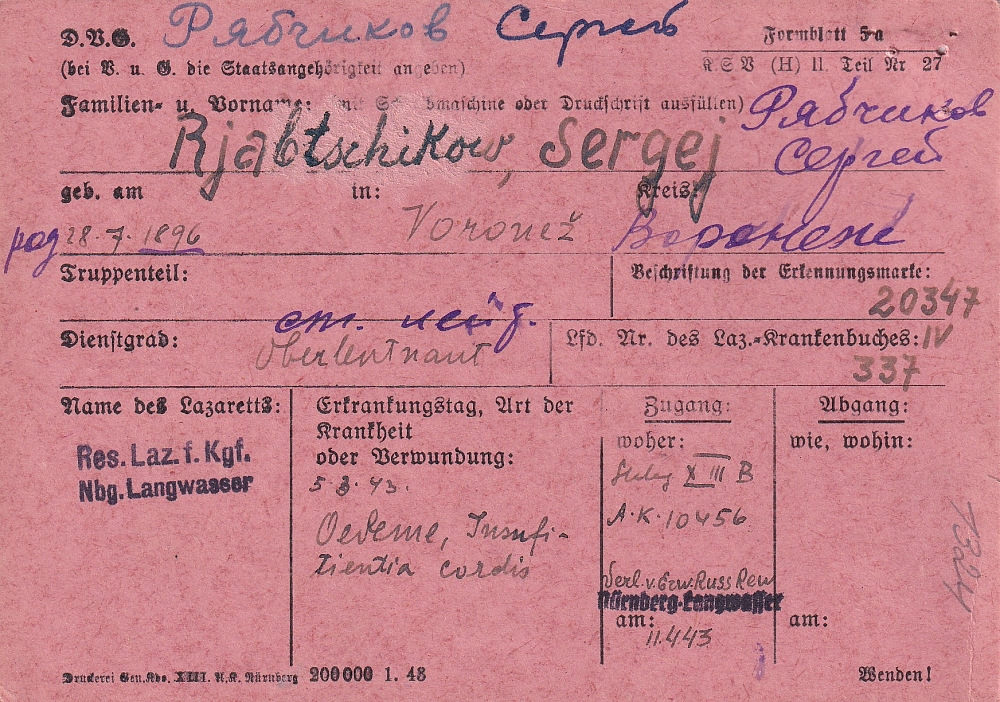 D.V.G. Рябчиков Сергей
Formblatt 5a
(bei V. u. G. die Staatsangehörigkeit angeben)
KSV (H) II. Teil Nr 27
Familien- u. Vorname: (mit Schreibmaschine oder Druckschrift ausfüllen) Рябчиков
Rjabtschikow, Sergej Сергей
geb. am in: Kreis:
род 28.7.1896 Voronež Воронеж
Truppenteil:
Beschriftung der Erkennungsmarke:
20347
ст. лейт.
Dienstgrad:
Oberleutnant
Lfd. Nr. des Laz.-Krankenbuches: IV
337
Name des Lazaretts:
Res. Laz. f. Kgf.
Nbg. Langwasser
Erkrankungstag, Art der
Krankheit
oder Verwundung:
5.3.43.
Oedeme, Insufi-
tientia cordis
Zugang:
woher:
XIII B
A.K. 10456
Nürnberg-Langwasser
am:
11.4.43
Abgang:
wie, wohin:
am:
Druckerei Gen.Kdo. XIII. A.K. Nürnberg 200000 1. 43
Wenden!